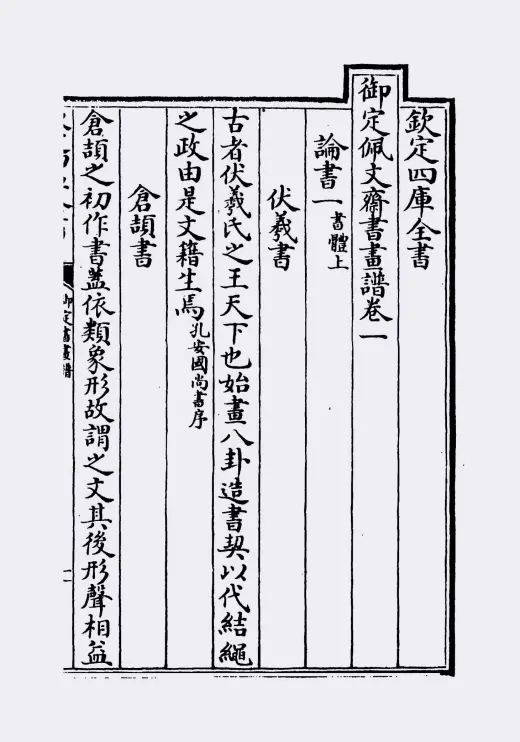 欽定四庫全書
御定佩文齋書畫譜卷一
論書一書體上
伏羲書
古者伏羲氏之王天下也始畫八卦造書契以代結繩
之政由是文籍生焉孔安國尚書序
倉頡書
倉頡之初作書蓋依類象形故謂之文其後形聲相益
御定書畫譜